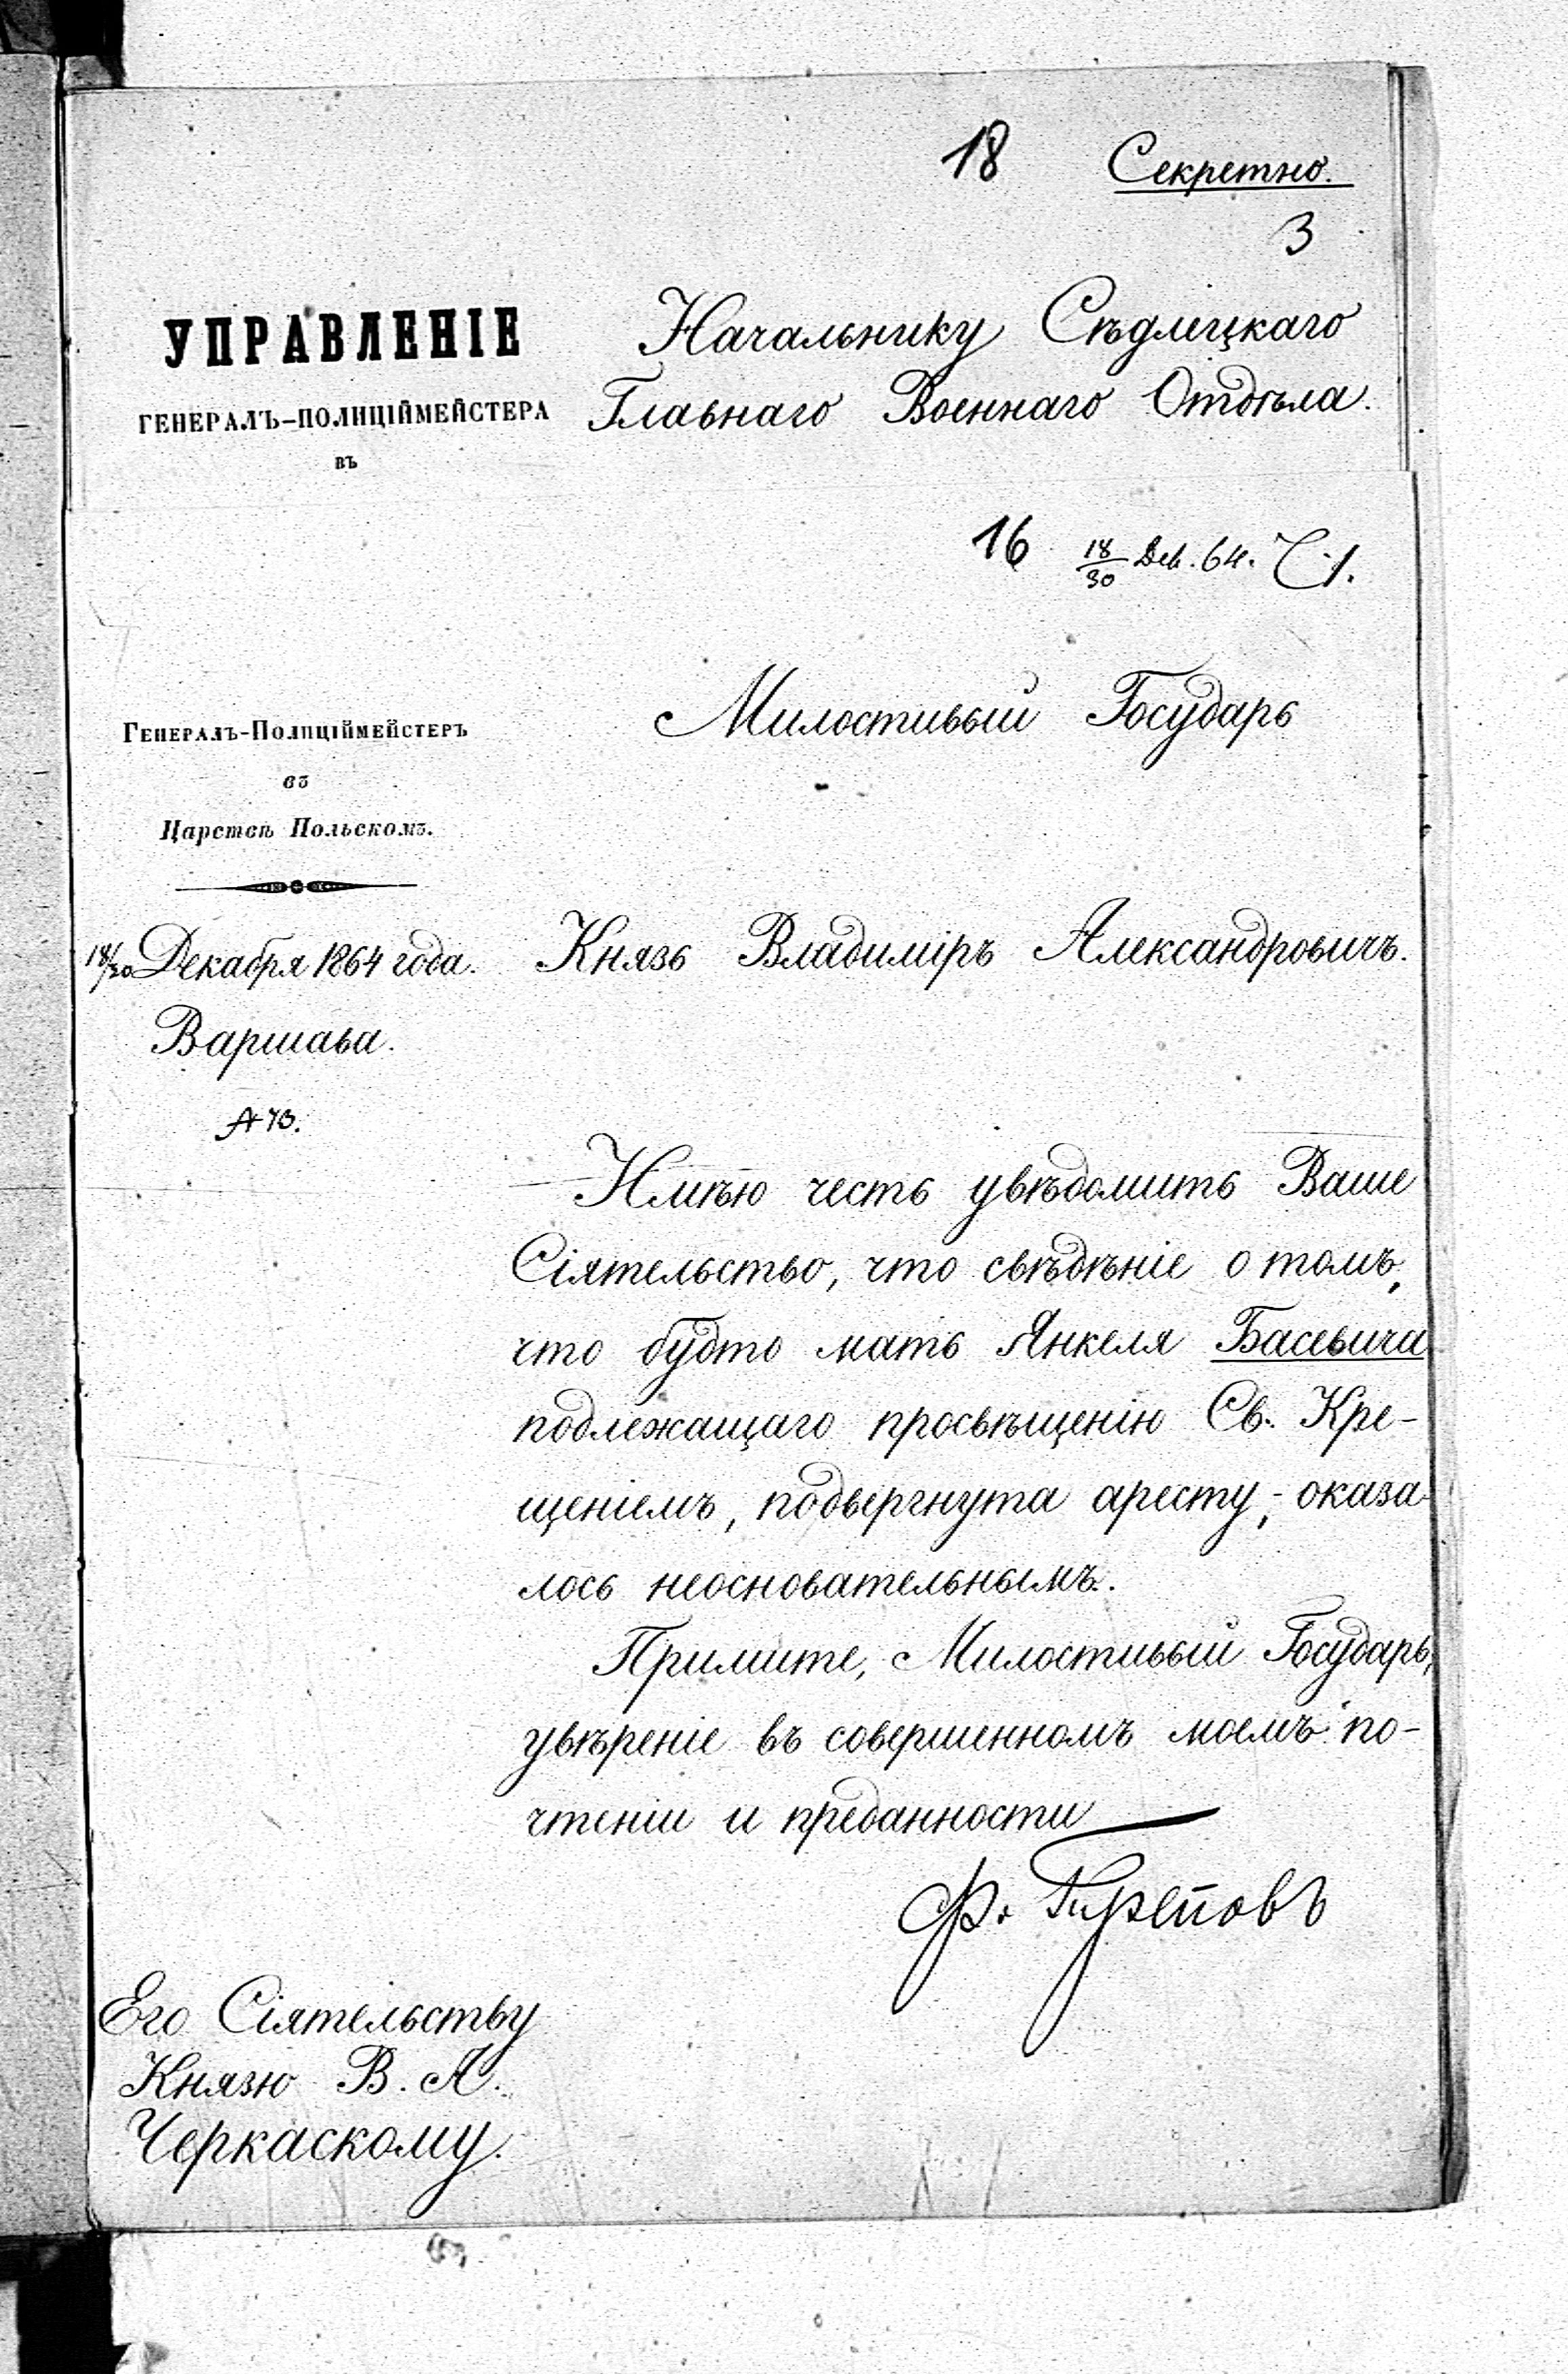 18 Секретно.
3
УПРАВЛЕНІЕ
ГЕНЕРАЛЪ-ПОЛИЦІЙМЕЙСТЕРА
ВЪ
Начальнику Сѣдлецкаго
Главнаго Военнаго Отдѣла.
16 18/30 Дек. 64.
Милостивый Государь
ГЕНЕРАЛЪ-ПОЛИЦІЙМЕЙСТЕРЪ
въ
Царствѣ Польскомъ.
18/30 Декабря 1864 года.
Варшава.
Князь Владиміръ Александровичъ.
Имѣю честь увѣдомить Ваше
Сіятельство, что свѣдѣніе о томъ,
что будто мать Янкеля Басевича
подлежащаго просвѣщенію Св. Кре-
щеніемъ, подвергнута аресту, - оказа-
лось неосновательнымъ.
Примите, Милостивый Государь,
увѣреніе въ совершенномъ моемъ по-
чтеніи и преданности
Ф. Треповъ
Его Сіятельству
Князю В. А.
Черкаскому.